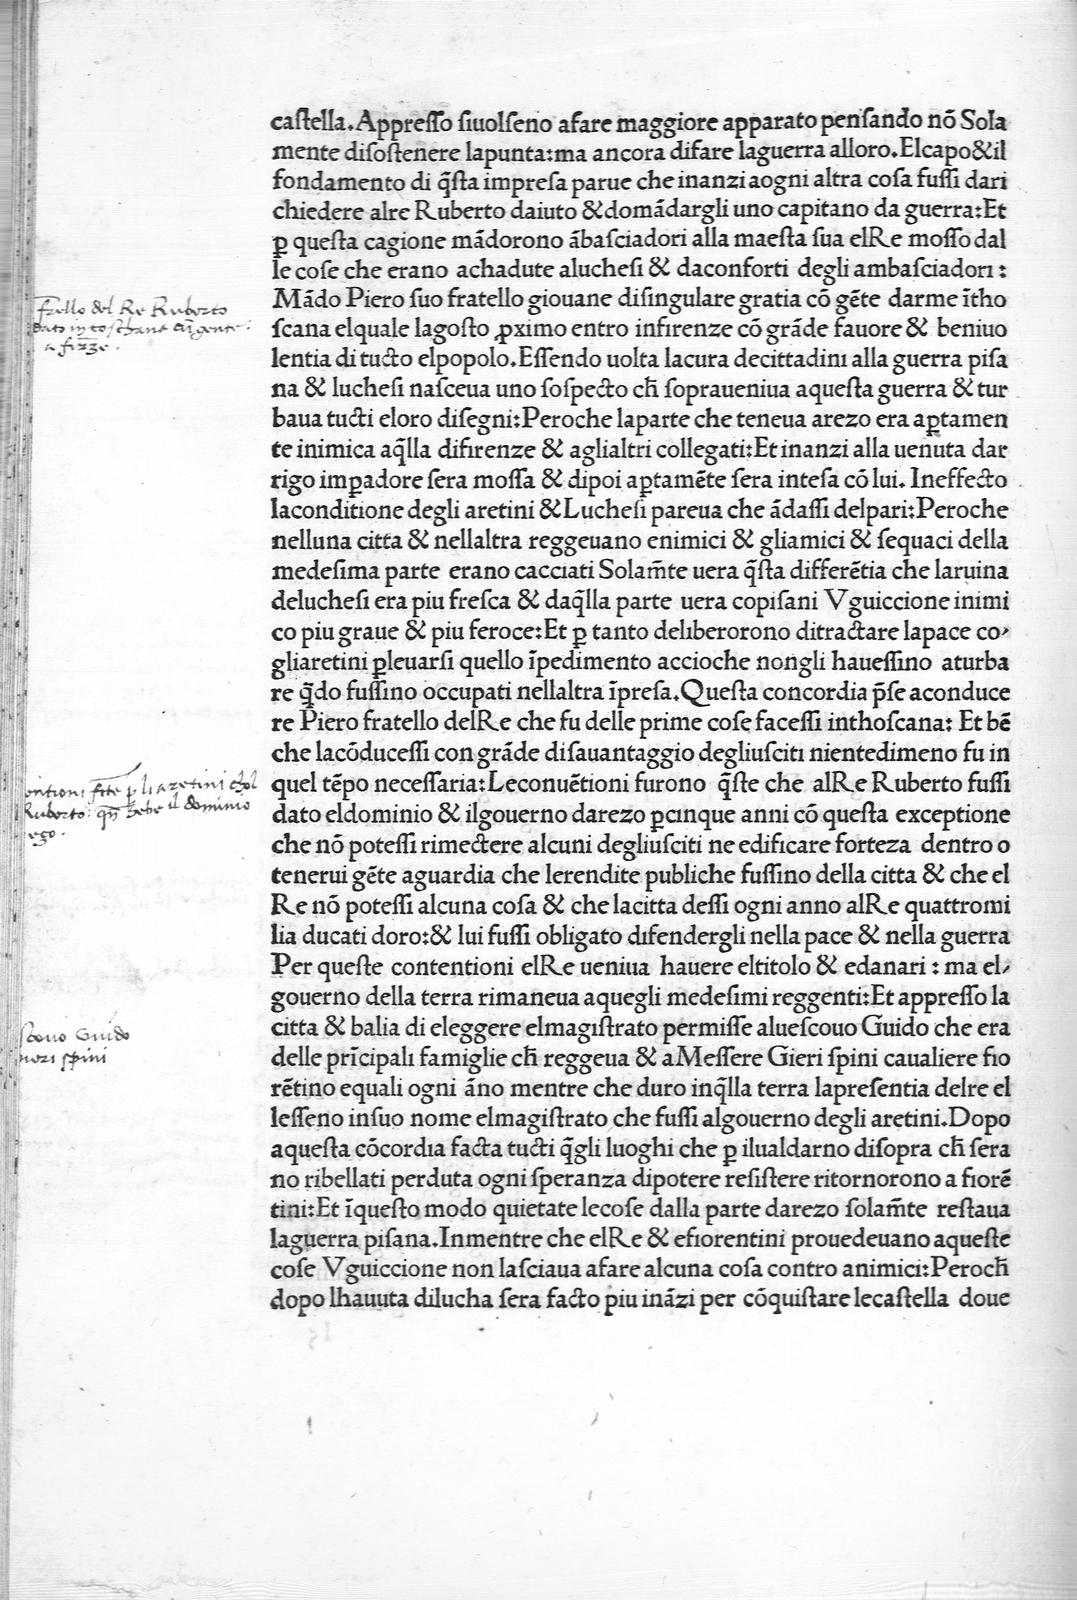 caſtella.Appreſſo ſiuolſeno afare maggiore apparato penſando nõ Sola
mente diſoſtenere lapunta:ma ancora difare laguerra alloro.Elcapo&il
fondamento di q̃ſta impreſa parue che inanzi aogni altra coſa fuſſi dari
chiedere alre Ruberto daiuto &domãdargli uno capitano da guerra:Et
ꝑ queſta cagione mãdorono ãbaſciadori alla maeſta ſua elRe moſſo dal
le coſe che erano achadute alucheſi & daconforti degli ambaſciadori :
Mãdo Piero ſuo fratello giouane diſingulare gratia cõ gẽte darme ĩtho
ſcana elquale lagoſto ꝓximo entro infirenze cõ grãde fauore & beniuo
lentia di tucto elpopolo.Eſſendo uolta lacura decittadini alla guerra piſa
na & lucheſi naſceua uno ſoſpecto ch̃ ſopraueniua aqueſta guerra & tur
baua tucti eloro diſegni:Peroche laparte che teneua arezo era aꝑtamen
te inimica aq̃lla difirenze & aglialtri collegati:Et inanzi alla uenuta dar
rigo imꝑadore ſera moſſa & dipoi aꝑtamẽte ſera inteſa cõ lui. Ineffecto
laconditione degli aretini &Lucheſi pareua che ãdaſſi delpari:Peroche
nelluna citta & nellaltra reggeuano enimici & gliamici & ſequaci della
medeſima parte erano cacciati Solam̃te uera q̃ſta differẽtia che laruina
delucheſi era piu freſca & daq̃lla parte uera copiſani Vguiccione inimi
co piu graue & piu feroce:Et ꝑ tanto deliberorono ditractare lapace co-
gliaretini ꝑleuarſi quello ĩpedimento accioche nongli haueſſino aturba
re q̃do fuſſino occupati nellaltra ĩpreſa.Queſta concordia p̃ſe aconduce
re Piero fratello delRe che fu delle prime coſe faceſſi inthoſcana: Et bẽ
che lacõduceſſi con grãde diſauantaggio degliuſciti nientedimeno fu in
quel tẽpo neceſſaria:Leconuẽtioni furono q̃ſte che alRe Ruberto fuſſi
dato eldominio & ilgouerno darezo ꝑcinque anni cõ queſta exceptione
che nõ poteſſi rimectere alcuni degliuſciti ne edificare forteza dentro o
tenerui gẽte aguardia che lerendite publiche fuſſino della citta & che el
Re nõ poteſſi alcuna coſa & che lacitta deſſi ogni anno alRe quattromi
lia ducati doro:& lui fuſſi obligato difendergli nella pace & nella guerra
Per queſte contentioni elRe ueniua hauere eltitolo & edanari : ma el-
gouerno della terra rimaneua aquegli medeſimi reggenti:Et appreſſo la
citta & balia di eleggere elmagiſtrato permiſſe alueſcouo Guido che era
delle prĩcipali famiglie ch̃ reggeua & aMeſſere Gieri ſpini caualiere fio
rẽtino equali ogni ãno mentre che duro inq̃lla terra lapreſentia delre el
leſſeno inſuo nome elmagiſtrato che fuſſi algouerno degli aretini.Dopo
aqueſta cõcordia facta tucti q̃gli luoghi che ꝑ ilualdarno diſopra ch̃ ſera
no ribellati perduta ogni ſperanza dipotere reſiſtere ritornorono a fiorẽ
tini:Et ĩqueſto modo quietate lecoſe dalla parte darezo ſolam̃te reſtaua
laguerra piſana.Inmentre che elRe & efiorentini prouedeuano aqueſte
coſe Vguiccione non laſciaua afare alcuna coſa contro animici:Peroch̃
dopo lhauuta dilucha ſera facto piu inãzi per cõquiſtare lecaſtella doue
frello del Re Ruberto
ĩ toſchana
Ruberto: il dominio
ſcouo Guido
ſpini